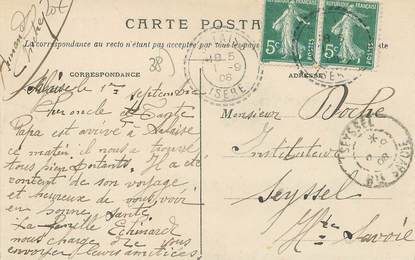 CARTE POSTALE
La correspondance au recto n'étant pas acceptée par tous les pays
CORRESPONDANCE
ADRESSE
38
5c
5c
ISÈRE
Salaise le 1er septembre
Cher oncle et Tante
Papa est arrivé à Salaise
ce matin il nous a trouvé
tous bien portants. Il a été
content de son voyage
et heureux de vous voir
en bonne santé
La famille
nous charge de vous
envoyer leurs amitiés.
Monsieur Boche
Instituteur
Seyssel
Hte Savoie
SEYSSEL